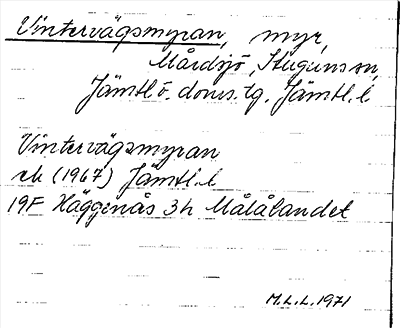 Vintervägsmyran, myr,
Mårdsjö, Stuguns sn,
Jämtl. ö. doms. tg. Jämtl. l
Vintervägsmyran
ek (1967) Jämtl. l
19F Häggenås 3h Målålandet
M.L.L. 1971